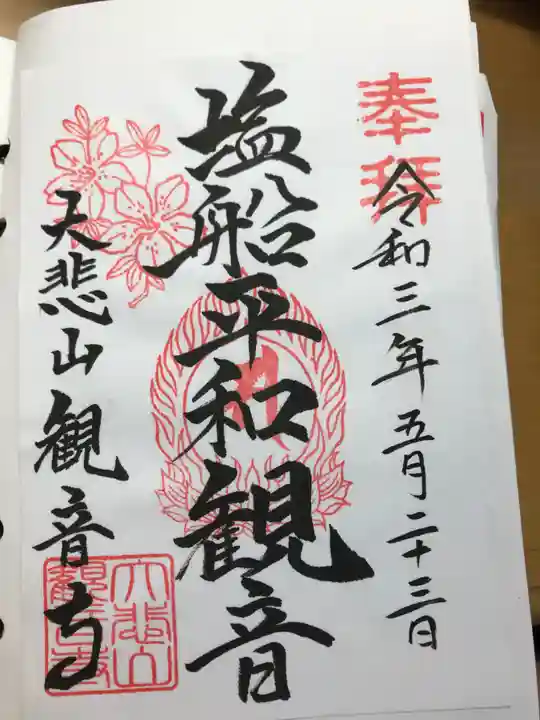 奉拝
令和三年五月二十三日
塩船平和観音
大悲山観音寺
大悲山
観音寺